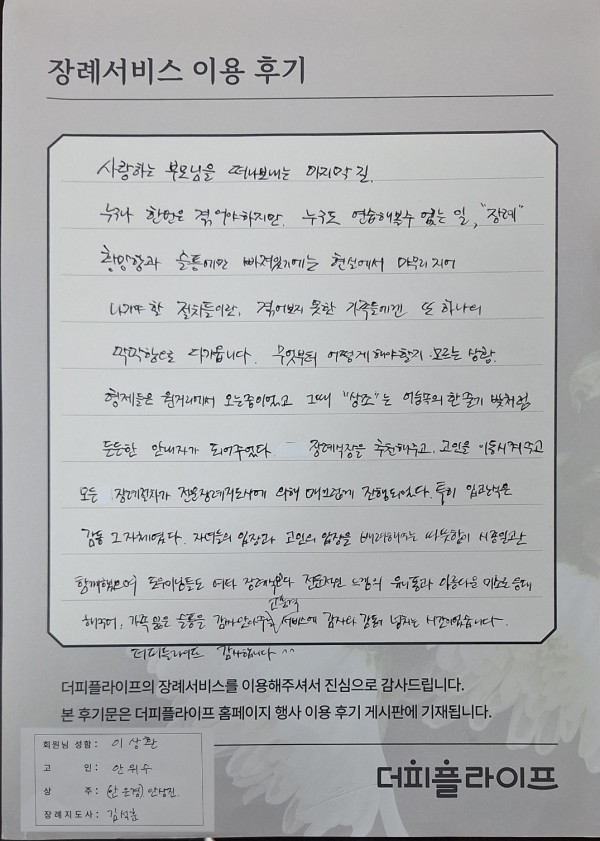 장례서비스 이용 후기
사랑하는 부모님을 떠나보내는 마지막 길.
누구나 한번은 겪어야하지만, 누구도 연습해볼수 없는 일, "장례"
황망함과 슬픔에만 빠져있기에는 현실에서 마무리 지어
나가야 할 절차들이란, 겪어보지 못한 가족들에겐 또 하나의
막막함으로 다가옵니다. 무엇부터 어떻게 해야할지 모르는 상황.
형제들은 원거리에서 오는중이었고 그때 "상조"는 어둠속의 한줄기 빛처럼
든든한 안내자가 되어주었다. 장례식장을 추천해주고, 고인을 이동시켜주고
모든 장례절차가 전문장례지도사에 의해 매끄럽게 진행되었다. 특히 입관식은
감동 그 자체였다. 자녀들의 입장과 고인의 입장을 배려해주는 따뜻함이 시종일관
함께했으며 도우미님들도 여타 장례식보다 전문적인 느낌의 유니폼과 아름다운 미소로 응대
해주며, 가족 잃은 슬픔을 감싸안아주는 고품격 서비스에 감사와 감동이 넘치는 시간이었습니다.
더피플라이프 감사합니다 ^^
더피플라이프의 장례서비스를 이용해주셔서 진심으로 감사드립니다.
본 후기문은 더피플라이프 홈페이지 행사 이용 후기 게시판에 기재됩니다.
회원님 성함 : 이상환
고 인 : 안위수
상 주 : (안은경) 안상진
장례지도사 : 김석훈
더피플라이프